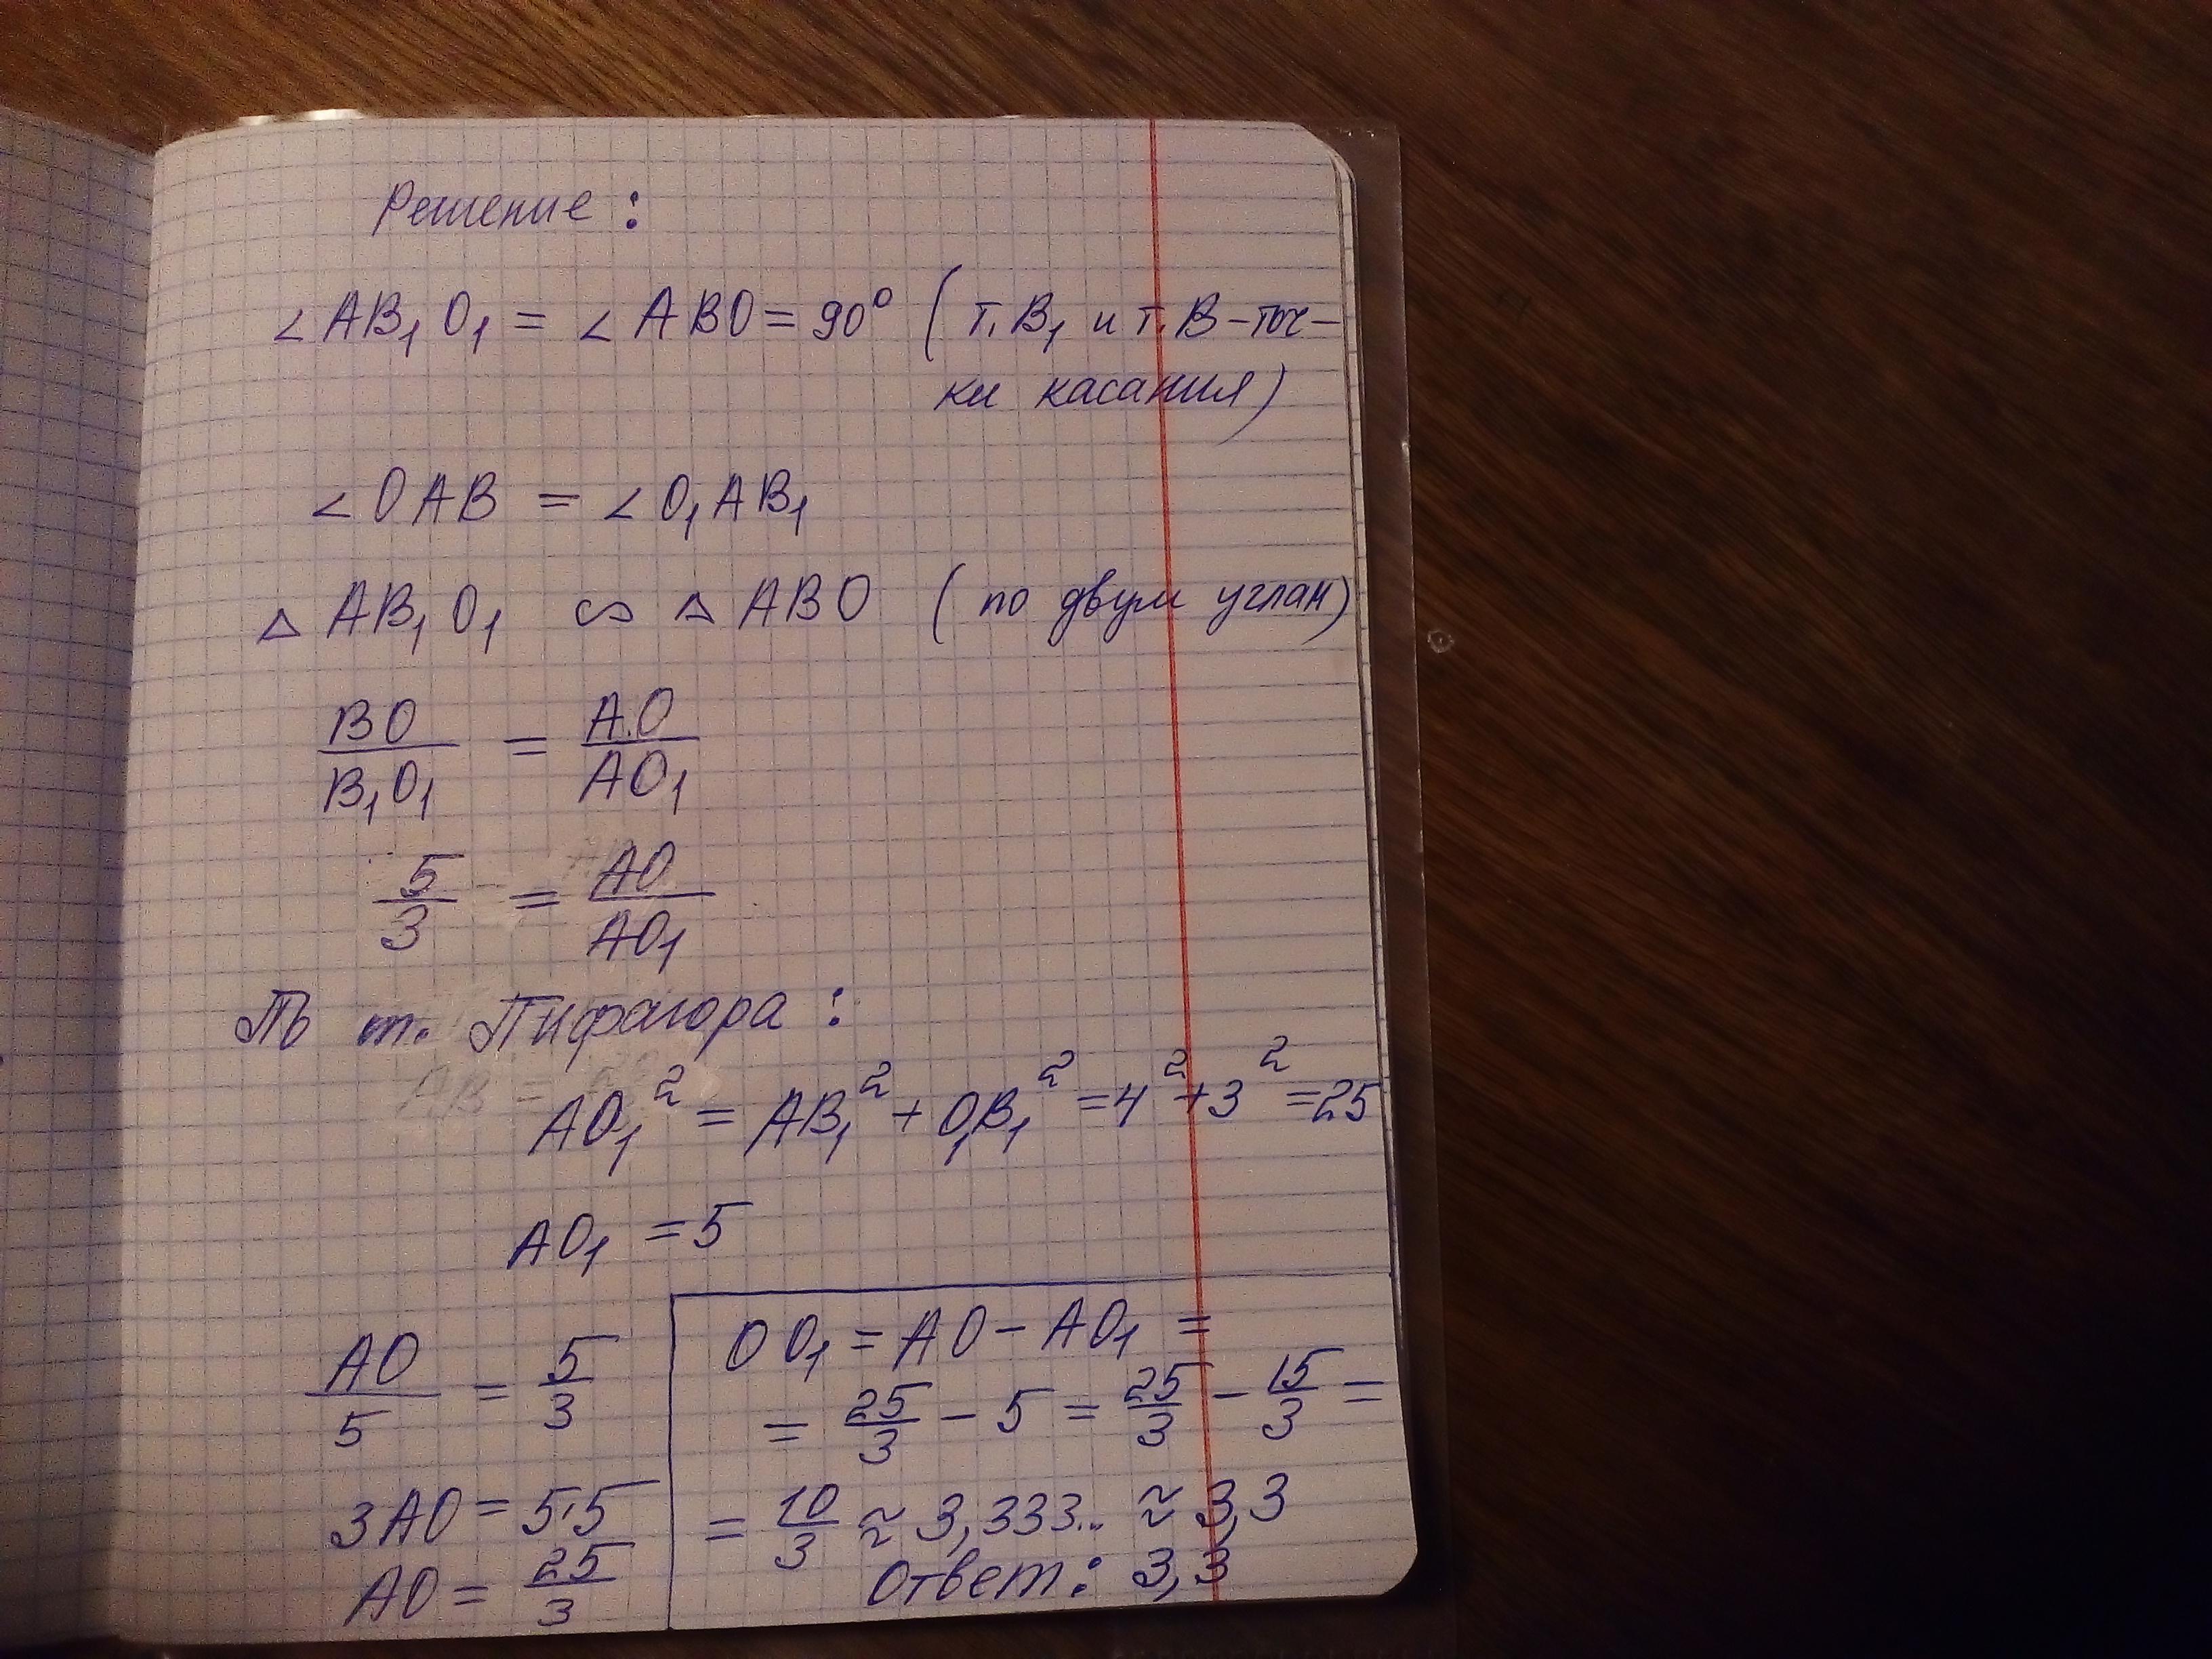 Решение:
∠AB₁O₁ = ∠ABO = 90° (т. B₁ и т. B – точ-
ки касания)
∠OAB = ∠O₁AB₁
△AB₁O₁ ∽ △ABO (по двум углам)
BO/B₁O₁ = AO/AO₁
5/3 = AO/AO₁
По т. Пифагора:
AO₁² = AB₁² + O₁B₁² = 4² + 3² = 25
AO₁ = 5
AO/5 = 5/3
3AO = 5·5
AO = 25/3
OO₁ = AO – AO₁ =
= 25/3 – 5 = 25/3 – 15/3 =
= 10/3 ≈ 3,333... ≈ 3,3
Ответ: 3,3